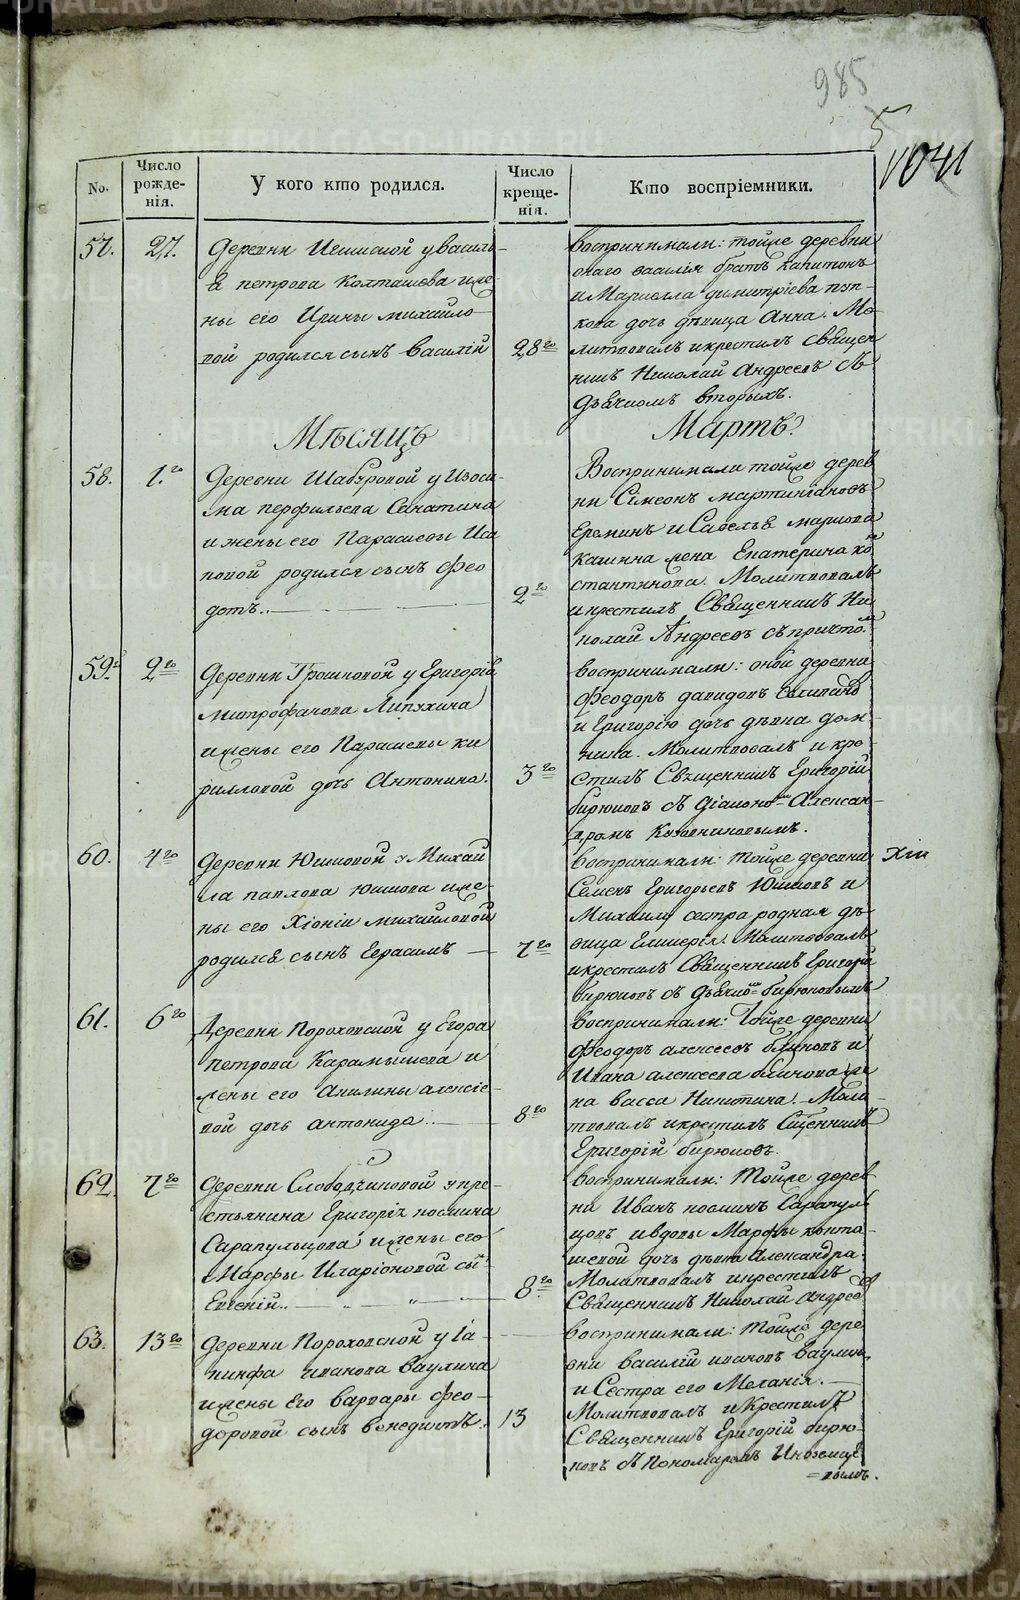 985
5
1041
No.
Число рожде-нія.
У кого кто родился.
Число креще-нія.
Кто воспріемники.
57.
27.
Деревни у Василь-
я петрова Колташева и же-
ны его Ирины михайло-
вой родился сынъ Василій
28го
Воспринимали: тойже деревни
онаго василія братъ капитонъ
и Маркелла димитріева пуп-
кова дочь дѣвица Анна. Мо-
литвовалъ и крестилъ Священ
никъ Николай Андреевъ съ
Дьячкомъ вторыхъ.
Мѣсяцъ
Мартъ.
58.
1.го
Деревни Шабуровой у Изоси-
ма перфильева Санатина
и жены его Парасковьи Иса
ковой родился сынъ Фео
дотъ..
2го
Воспринимали тойже дерев
ни Сімеонъ мартиніановъ
Ереминъ и Савелья маркова
жена Екатерина ко
стантинова. Молитвовалъ
и крестилъ Священникъ Ни
колай Андреевъ съ причто.м
59.
2го
Деревни Грошковой у Григорія
митрофанова Липухина
и жены его Парасковьи ки
рилловой дочь Антонина.
3го
Воспринимали: оной деревни
Феодоръ давидовъ
и Григорію дочь дѣвка дом-
ника. Молитвовалъ и кре-
стилъ Священникъ Григорій
бирюковъ съ Діаконом Алексан-
дромъ
60.
4го
Деревни Юшковой у Михай
ла павлова Юшкова и же-
ны его Хіоніи михайловой
родился сынъ Герасимъ
7го
Воспринимали: тойже деревни
Семенъ Григорьевъ Юшковъ и
Михаилу сестра родная дѣ-
вица Гликерія. Молитвовалъ
и крестилъ Священникъ Григорій
бирюковъ съ дьячком бирюковымъ
61.
6го
Деревни Пороховской у Егора
петрова Карамышева и
жены его Акилины алексіе-
вой дочь антонида..
8го
Воспринимали: Тойже деревни
Феодоръ алексеевъ блиновъ и
Ивана алексеева блинова же
на васса Никитина. Моли-
твовалъ и крестилъ Сщенникъ
Григорій бирюковъ.
62.
7го
Деревни Слободчиковой у кре-
стьянина Григорія косьмина
Сарапульцова и жены его
Марфы Иларіоновой сы
Евгеній..
8го
Воспринимали: Тойже дерев
ни Иванъ косминъ Сарапуль
цовъ и вдовы Марфы
дочь дѣвка Александра.
Молитвовалъ и крестилъ
Священникъ Николай Андреев
63.
13го
Деревни Пороховской у Іа-
кинфа иванова Ваулина
и жены Его варвары фео-
доровой сынъ венедиктъ.
13
Воспринимали: Тойже дере
вни василій ивановъ Ваулин
и Сестра его Меланія.
Молитвовалъ и Крестилъ
Священникъ Григорій бирю-
ковъ съ Пономаремъ Иноземце
=вымъ.